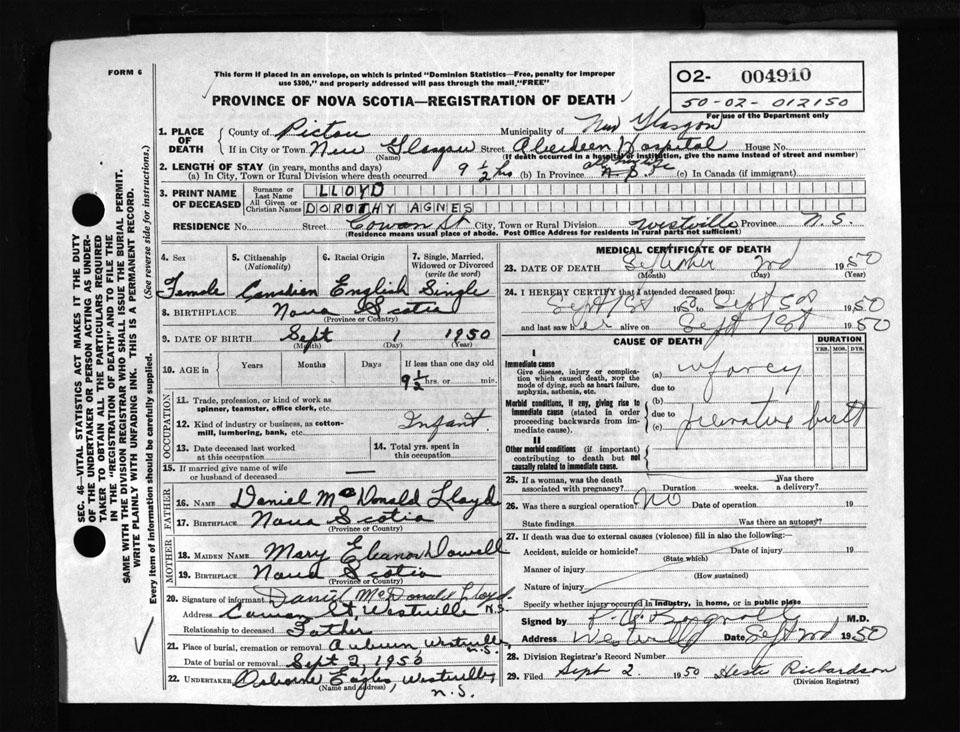 FORM 6
This form if placed in an envelope, on which is printed "Dominion Statistics—Free, penalty for improper
use $300," and properly addressed will pass through the mail "FREE"
O2- 004910
50-02-012150
For use of the Department only
PROVINCE OF NOVA SCOTIA—REGISTRATION OF DEATH
1. PLACE OF DEATH
County of Pictou Municipality of New Glasgow
If in City or Town New Glasgow Street Aberdeen Hospital House No.
(Name) (If death occurred in a hospital or institution, give the name instead of street and number)
2. LENGTH OF STAY (in years, months and days)
(a) In City, Town or Rural Division where death occurred 9 1/2 hrs (b) In Province (c) In Canada (if immigrant)
3. PRINT NAME OF DECEASED
Surname or Last Name LLOYD
All Given or Christian Names DOROTHY AGNES
RESIDENCE No. Street Cowan St City, Town or Rural Division Westville Province N.S.
(Residence means usual place of abode. Post Office Address for residents in rural parts not sufficient)
4. Sex 5. Citizenship (Nationality) 6. Racial Origin 7. Single, Married, Widowed or Divorced (write the word)
Female Canadian English Single
8. BIRTHPLACE Nova Scotia
(Province or Country)
9. DATE OF BIRTH Sept 1 1950
(Month) (Day) (Year)
10. AGE in Years Months Days If less than one day old
9 1/2 hrs. or min.
OCCUPATION
11. Trade, profession, or kind of work as
spinner, teamster, office clerk, etc.
12. Kind of industry or business, as cotton-
mill, lumbering, bank, etc. Infant.
13. Date deceased last worked
at this occupation
14. Total yrs. spent in
this occupation
15. If married give name of wife
or husband of deceased —
FATHER
16. NAME Daniel McDonald Lloyd
17. BIRTHPLACE Nova Scotia
(Province or Country)
MOTHER
18. MAIDEN NAME Mary Eleanor Dowell
19. BIRTHPLACE Nova Scotia
(Province or Country)
20. Signature of informant Daniel McDonald Lloyd
Address Cowan St, Westville N.S.
Relationship to deceased Father
21. Place of burial, cremation or removal Auburn, Westville, N.S.
Date of burial or removal Sept 2, 1950
22. UNDERTAKER Osborne Eagles, Westville, N.S.
(Name and address)
MEDICAL CERTIFICATE OF DEATH
23. DATE OF DEATH September 2nd 1950
(Month) (Day) (Year)
24. I HEREBY CERTIFY that I attended deceased from:
Sept 1st 50 to Sept 1950
and last saw her alive on Sept 1st 1950
CAUSE OF DEATH
DURATION
YRS. MOS. DYS.
I
Immediate cause
Give disease, injury or complication which caused death, NOT the mode of dying, such as heart failure, asphyxia, asthenia, etc.
(a)
due to
Morbid conditions, if any, giving rise to immediate cause (stated in order proceeding backwards from immediate cause).
(b)
due to
(c) premature birth
II
Other morbid conditions (if important) contributing to death but not causally related to immediate cause.
25. If a woman, was the death
associated with pregnancy? Duration weeks. Was there a delivery?
26. Was there a surgical operation? NO Date of operation 19
State findings Was there an autopsy?
27. If death was due to external causes (violence) fill in also the following:—
Accident, suicide or homicide? Date of injury 19
(State which)
Manner of injury
(How sustained)
Nature of injury
Specify whether injury occurred in industry, in home, or in public place
Signed by M.D.
Address Westville Date Sept 2nd 1950
28. Division Registrar's Record Number
29. Filed Sept 2. 1950 Richardson
(Division Registrar)
SEC. 46—VITAL STATISTICS ACT MAKES IT THE DUTY
OF THE UNDERTAKER OR PERSON ACTING AS UNDER-
TAKER TO OBTAIN ALL THE PARTICULARS REQUIRED
IN THE "REGISTRATION OF DEATH" AND TO FILE THE
SAME WITH THE DIVISION REGISTRAR WHO SHALL ISSUE THE BURIAL PERMIT.
WRITE PLAINLY WITH UNFADING INK. THIS IS A PERMANENT RECORD.
Every item of information should be carefully supplied. (See reverse side for instructions.)